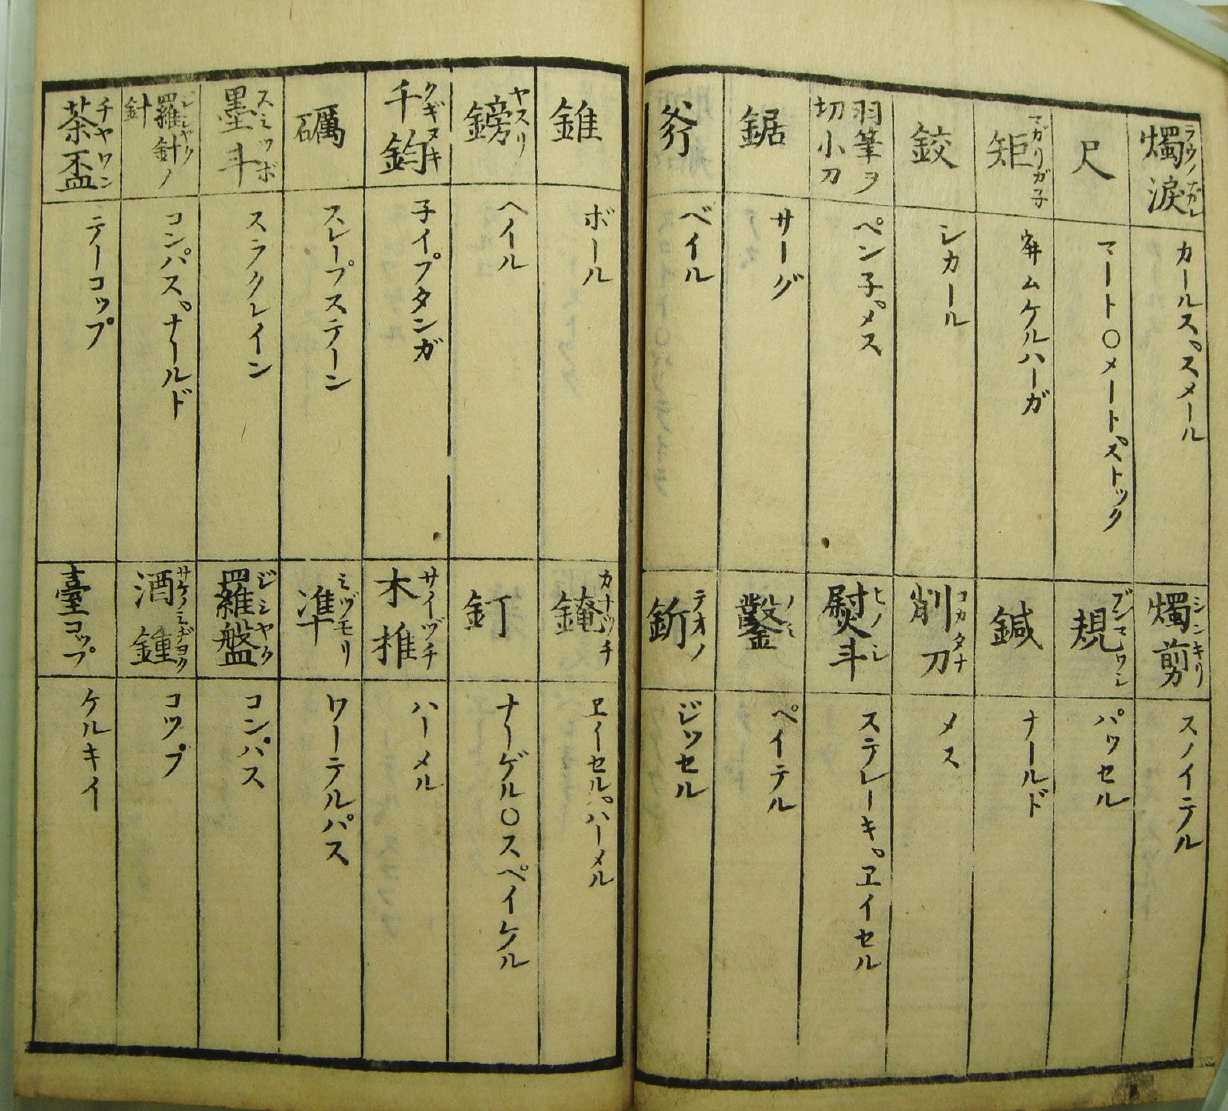 燭淚 ラウノナガレ
カールス、スメール
尺
マート〇メート、ストック
矩 マガリガ子
ヰムケルハーガ
鉸
シカール
羽筆ヲ切小刀
ペン子、メス
鋸
サーグ
斧
ベイル
燭剪 シンキリ
スノイテル
規 ブンマワシ
パッセル
鍼
ナールド
削刀 コカタナ
メス
熨斗 ヒノシ
ステレーキ、ヱイセル
鑿 ノミ
ベイテル
釿 テオノ
ジッセル
錐
ボール
鎊 ヤスリ
ヘイル
千鈞 クギヌキ
子イプタンガ
礪
スレープステーン
墨斗 スミツボ
スラクレイン
羅針ノ針
コンパス、ナールド
茶盃 チヤワン
テーコップ
錘 カナヅチ
ヱイーセル、ハーメル
釘
ナーゲル〇スペイケル
木椎 サイヅチ
ハーメル
準 ミヅモリ
ワーテルパス
羅盤 ジシヤク
コンパス
酒鍾
コップ
臺コップ
ケルキイ